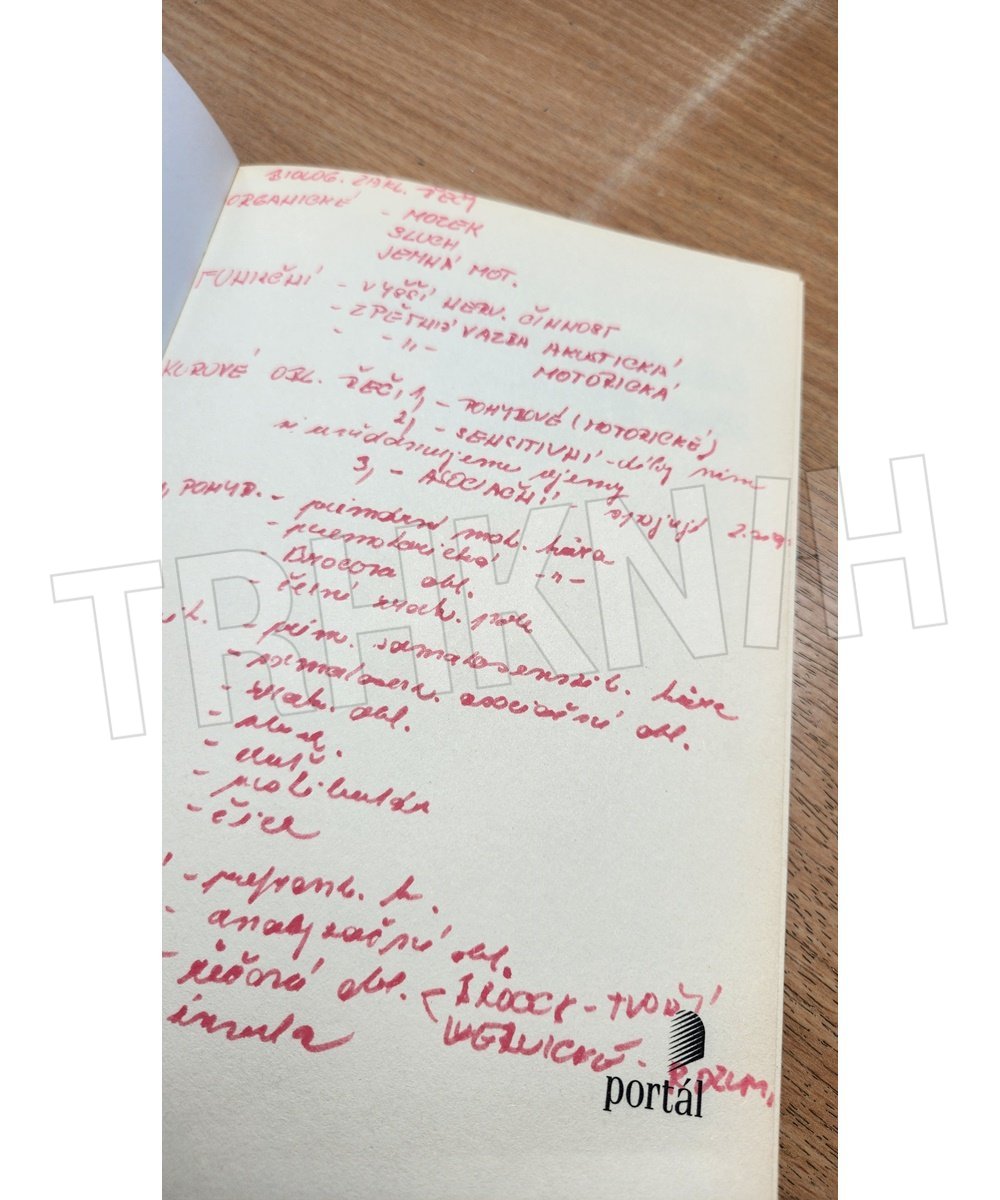 BIOLOG. ZÁKL. ŘEČI
ORGANICKÉ - MOZEK
SLUCH
JEMNÁ MOT.
FUNKČNÍ - VYŠŠÍ NERV. ČINNOST
- ZPĚTNÁ VAZBA AKUSTICKÁ
- -"- MOTORICKÁ
KOROVÉ OBL. ŘEČI 1, - POHYBOVÉ (MOTORICKÉ)
2, - SENSITIVNÍ - díky nim
si uvědomujeme vjemy
3, - ASOCIAČNÍ - spojují
POHYB. - primární mot. kůra
- premotorická -"-
- Brocova obl.
- čelní zrak. pole
- prim. somatosenzit. kůra
- somatosen. asociační obl.
- zrak. obl.
- sluch.
- čuti
- čich
- prefront. k.
- analyzační obl.
- řečová obl. < BROCK - TVOŘÍ
WERNICKÉ - ROZUMÍ
insula
portál
TRHKNIH